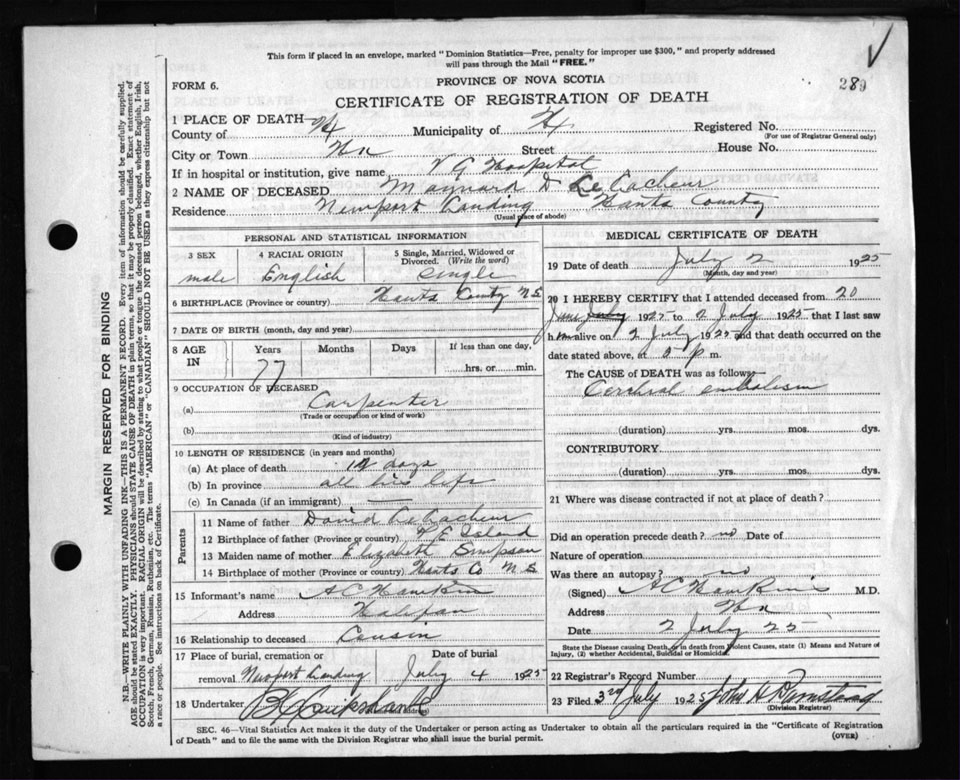 This form if placed in an envelope, marked "Dominion Statistics—Free, penalty for improper use $300," and properly addressed
will pass through the Mail "FREE."
289
FORM 6.
PROVINCE OF NOVA SCOTIA
CERTIFICATE OF REGISTRATION OF DEATH
1 PLACE OF DEATH—
County of Hx Municipality of Hx Registered No.
(For use of Registrar General only)
City or Town Hx Street House No.
If in hospital or institution, give name V G Hospital
2 NAME OF DECEASED Maynard D LeCacheur
Residence Newport Landing Hants County
(Usual place of abode)
PERSONAL AND STATISTICAL INFORMATION
3 SEX male
4 RACIAL ORIGIN English
5 Single, Married, Widowed or Divorced. (Write the word) Single
6 BIRTHPLACE (Province or country) Hants County N S
7 DATE OF BIRTH (month, day and year)
8 AGE IN Years 77 Months Days If less than one day, hrs. or min.
9 OCCUPATION OF DECEASED
(a) Carpenter
(Trade or occupation or kind of work)
(b)
(Kind of industry)
10 LENGTH OF RESIDENCE (in years and months)
(a) At place of death 12 days
(b) In province all his life
(c) In Canada (if an immigrant)
Parents
11 Name of father David LeCacheur
12 Birthplace of father (Province or country) P E Island
13 Maiden name of mother Elizabeth Simpson
14 Birthplace of mother (Province or country) Hants Co N S
15 Informant's name A C Hawkins
Address Halifax
16 Relationship to deceased Cousin
17 Place of burial, cremation or removal Newport Landing Date of burial July 4 1925
18 Undertaker Cruikshank
MEDICAL CERTIFICATE OF DEATH
19 Date of death July 2 1925
(Month, day and year)
20 I HEREBY CERTIFY that I attended deceased from 20
June July 1925 to 2 July 1925 that I last saw
h im alive on 2 July 1925 and that death occurred on
date stated above, at p. m.
The CAUSE of DEATH was as follows:
Cerebral embolism
(duration) yrs. mos. dys.
CONTRIBUTORY
(duration) yrs. mos. dys.
21 Where was disease contracted if not at place of death?
Did an operation precede death? no Date of
Nature of operation
Was there an autopsy? no
(Signed) A C Hawkins M.D.
Address Hx
Date 2 July 25
State the Disease causing Death, or in death from Violent Causes, state (1) Means and Nature of Injury, (2) whether Accidental, Suicidal or Homicidal.
22 Registrar's Record Number
23 Filed 3rd July 1925 John A
(Division Registrar)
SEC. 46—Vital Statistics Act makes it the duty of the Undertaker or person acting as Undertaker to obtain all the particulars required in the "Certificate of Registration
of Death" and to file the same with the Division Registrar who shall issue the burial permit.
(OVER)
MARGIN RESERVED FOR BINDING
N.B.—WRITE PLAINLY WITH UNFADING INK—THIS IS A PERMANENT RECORD. Every item of information should be carefully supplied.
AGE should be stated EXACTLY. PHYSICIANS should STATE CAUSE OF DEATH in plain terms, so that it may be properly classified. Exact statement of
OCCUPATION is very important. RACIAL ORIGIN will be described by stating to what people or tongue the deceased person belonged, whether English, Irish,
Scotch, French, German, Russian, Ruthenian, etc. The terms "AMERICAN" or "CANADIAN" SHOULD NOT BE USED as they express citizenship but not
a race or people. See instructions on back of Certificate.